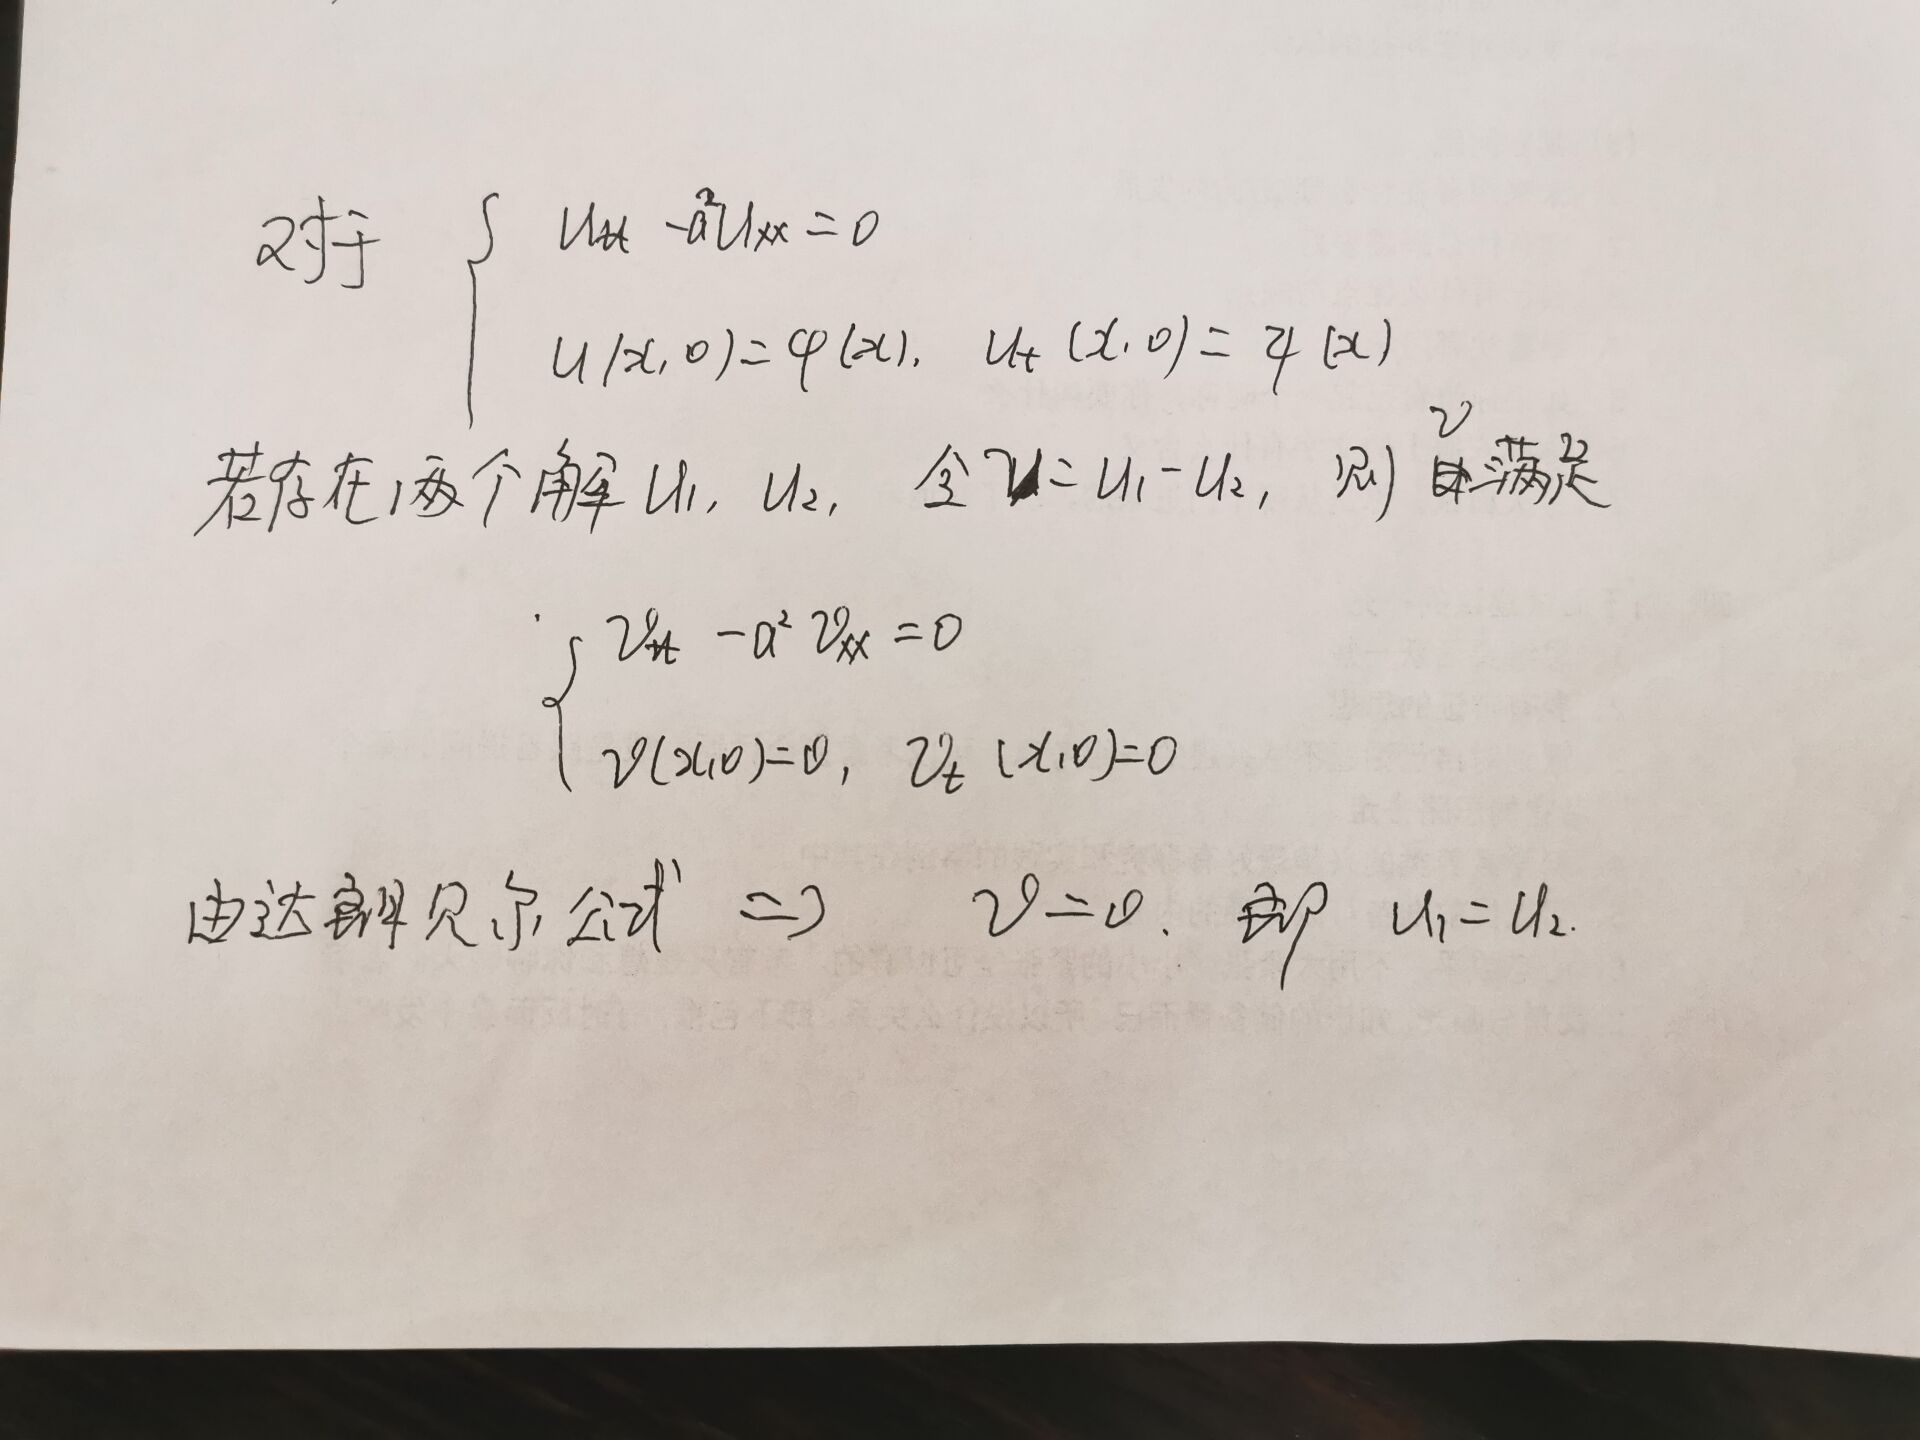 对于 { u_tt - a²u_xx = 0
u(x,0)=φ(x), u_t(x,0)=ψ(x)
若存在两个解 u₁, u₂, 令 v = u₁ - u₂, 则 v 满足
{ v_tt - a² v_xx = 0
v(x,0)=0, v_t(x,0)=0
由达朗贝尔公式 => v=0. 即 u₁=u₂.